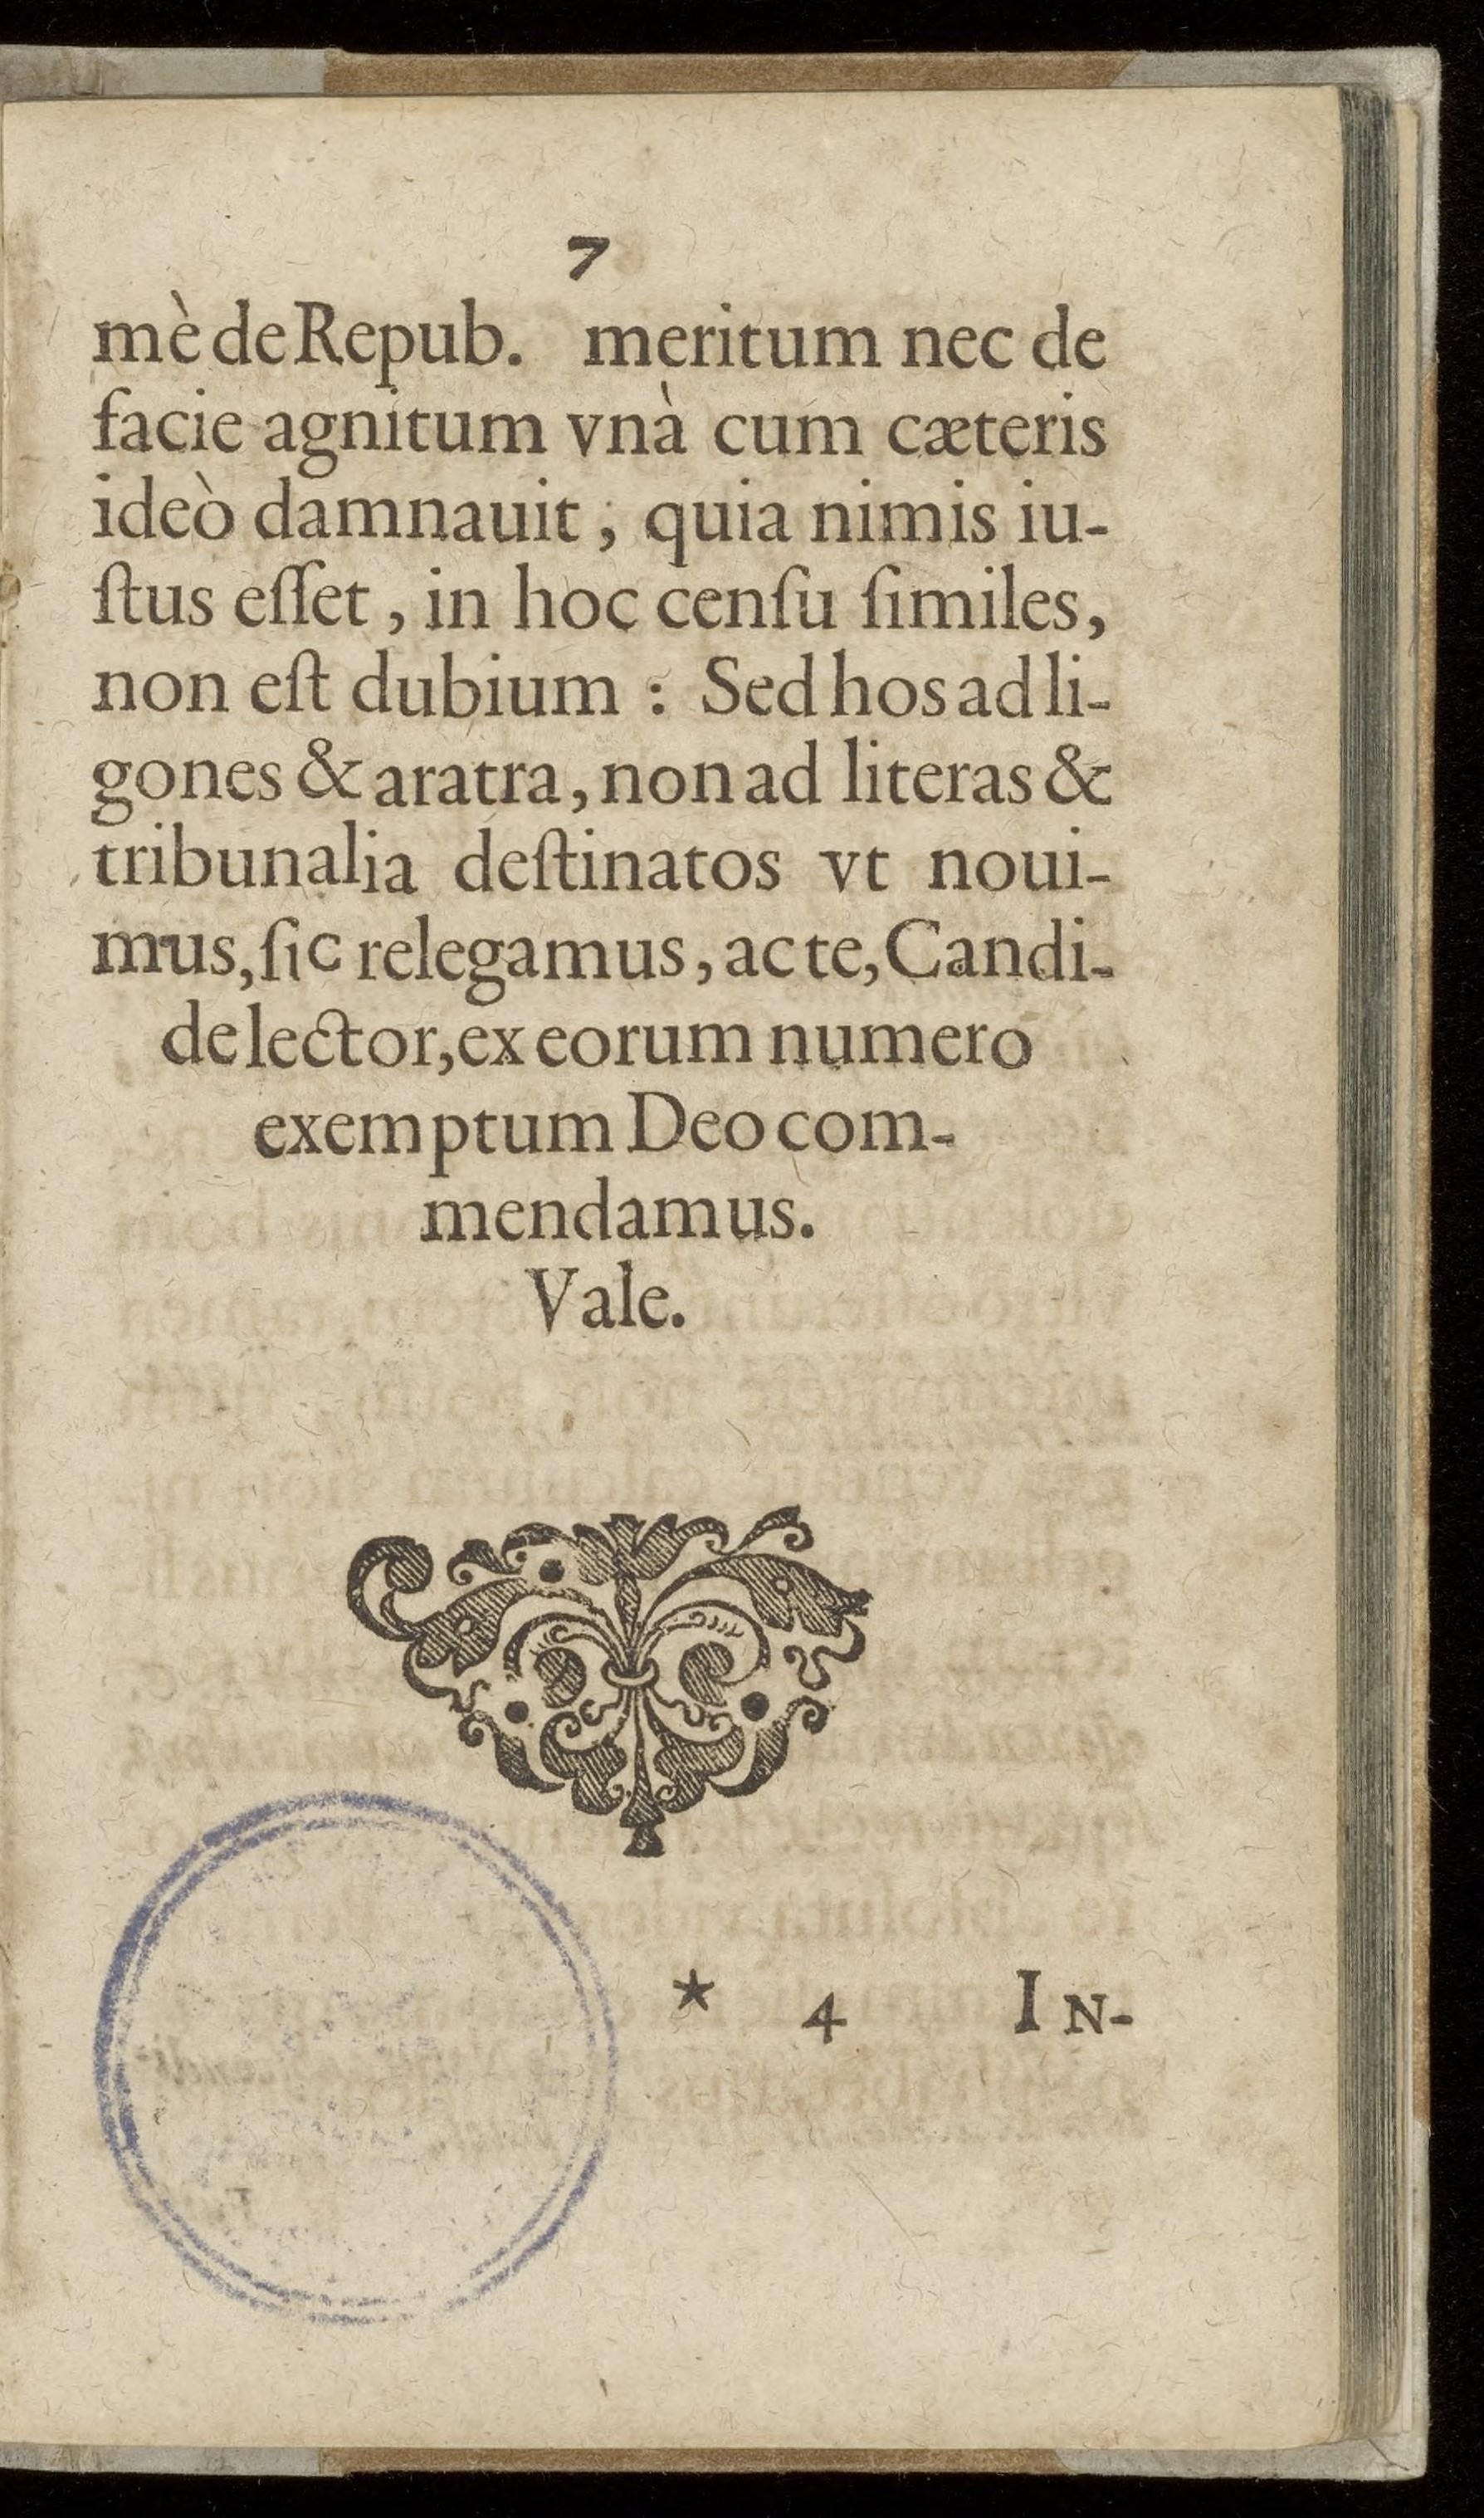 7
mè de Repub. meritum nec de
facie agnitum vnà cum cæteris
ideò damnauit, quia nimis iu-
ſtus eſſet, in hoc cenſu ſimiles,
non eſt dubium : Sed hos ad li-
gones & aratra, non ad literas &
tribunalia deſtinatos vt noui-
mus, ſic relegamus, ac te, Candi-
de lector, ex eorum numero
exemptum Deo com-
mendamus.
Vale.
* 4 IN-